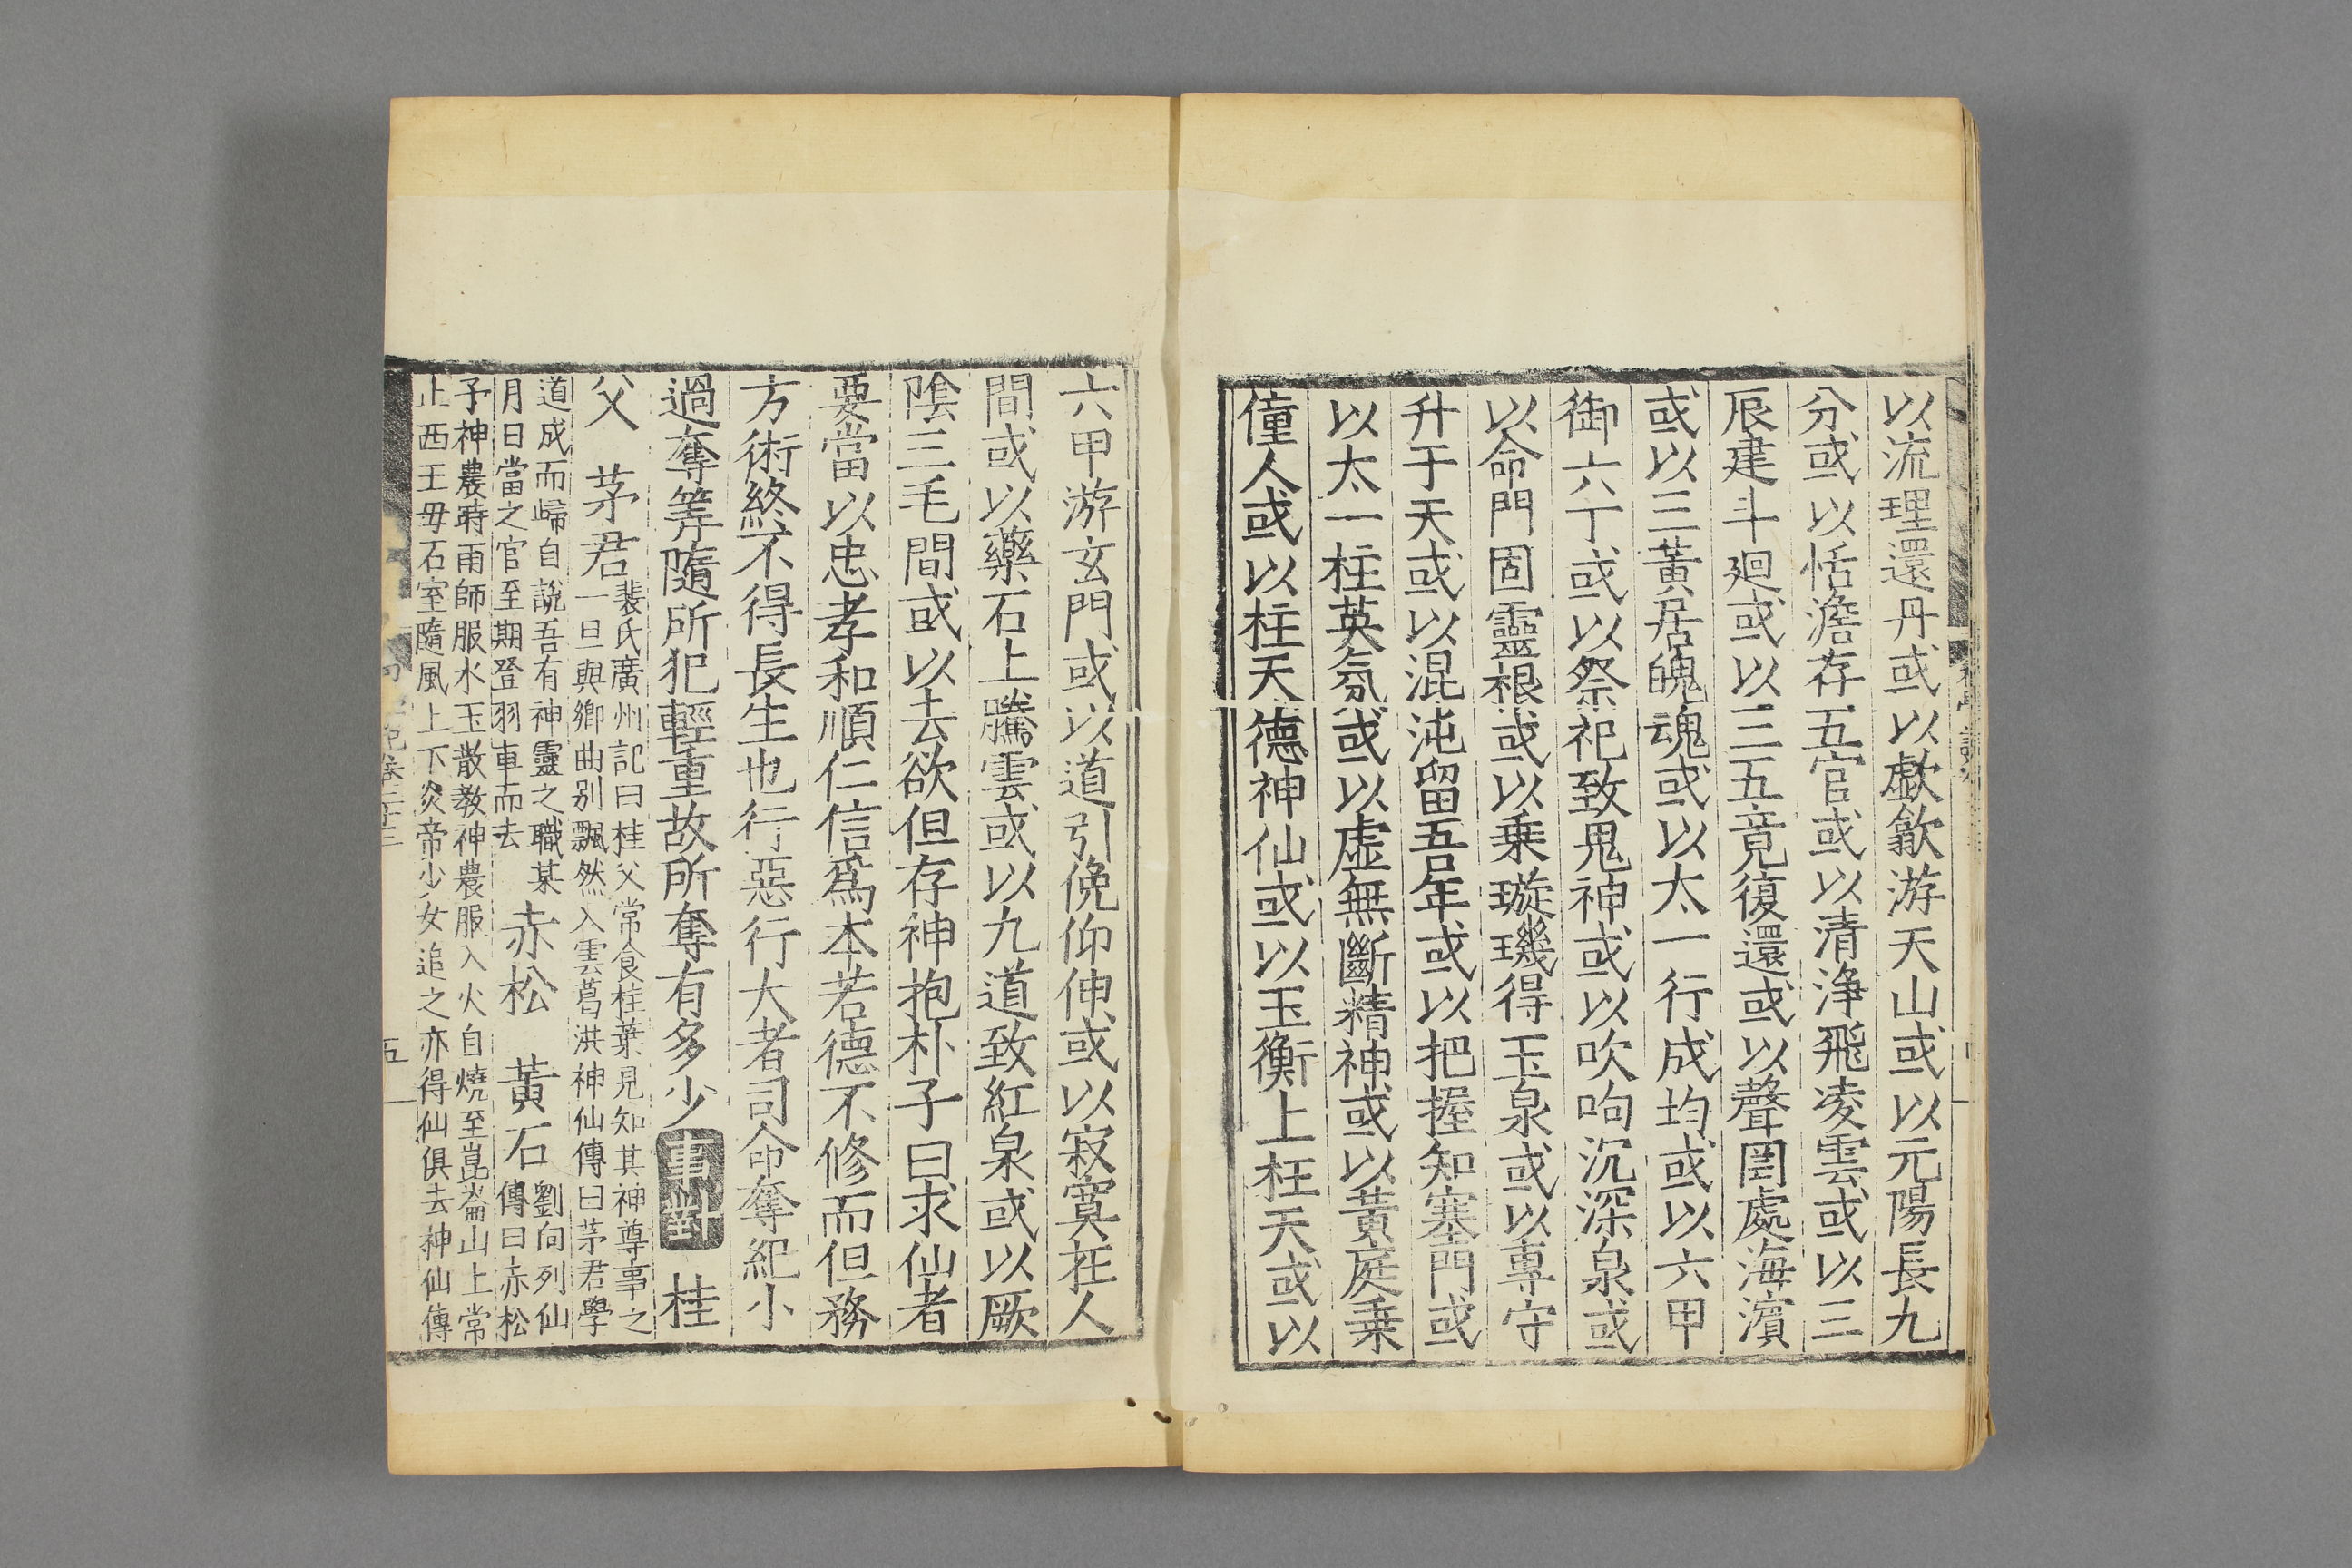 以流理還丹或以歔歙游天山或以元陽長九
分或以恬澹存五官或以清淨飛凌雲或以三
辰建斗廻或以三五竟復還或以聲罔處海濱
或以三黃居魄魂或以太一行成均或以六甲
御六丁或以祭祀致鬼神或以吹呴沉深泉或
以命門固靈根或以乗璇璣得玉泉或以專守
升于天或以混沌留吾年或以把握知塞門或
以太一柱英氛或以虛無斷精神或以黃庭乗
僮人或以柱天德神仙或以玉衡上柱天或以
六甲游玄門或以道引俛仰伸或以寂寞在人
間或以藥石上騰雲或以九道致紅泉或以厥
陰三毛間或以去欲但存神抱朴子曰求仙者
要當以忠孝和順仁信爲本若德不修而但務
方術終不得長生也行惡行大者司命奪紀小
過奪筭隨所犯輕重故所奪有多少事對 桂
父 茅君裴氏廣州記曰桂父常食桂葉見知其神尊事之
一旦與鄉曲别飄然入雲葛洪神仙傳曰茅君學
道成而歸自說吾有神靈之職某
月日當之官至期登羽車而去赤松 黃石劉向列仙
傳曰赤松
予神農時雨師服水玉散教神農服入火自燒至崑崙山上常
止西王毋石室隨風上下炎帝少女追之亦得仙俱去神仙傳
五